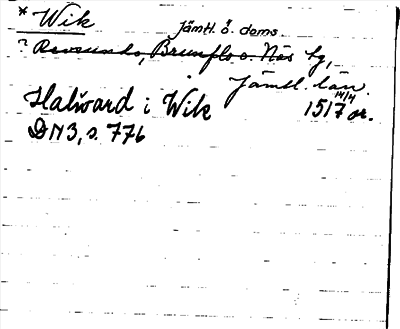 * Wik
Jämtl. ö. doms.
? Revsunds, Brunflo o. Näs tg,
Jämtl. län.
Halward i Wik 1517 14/4 or.
DN3, s. 776